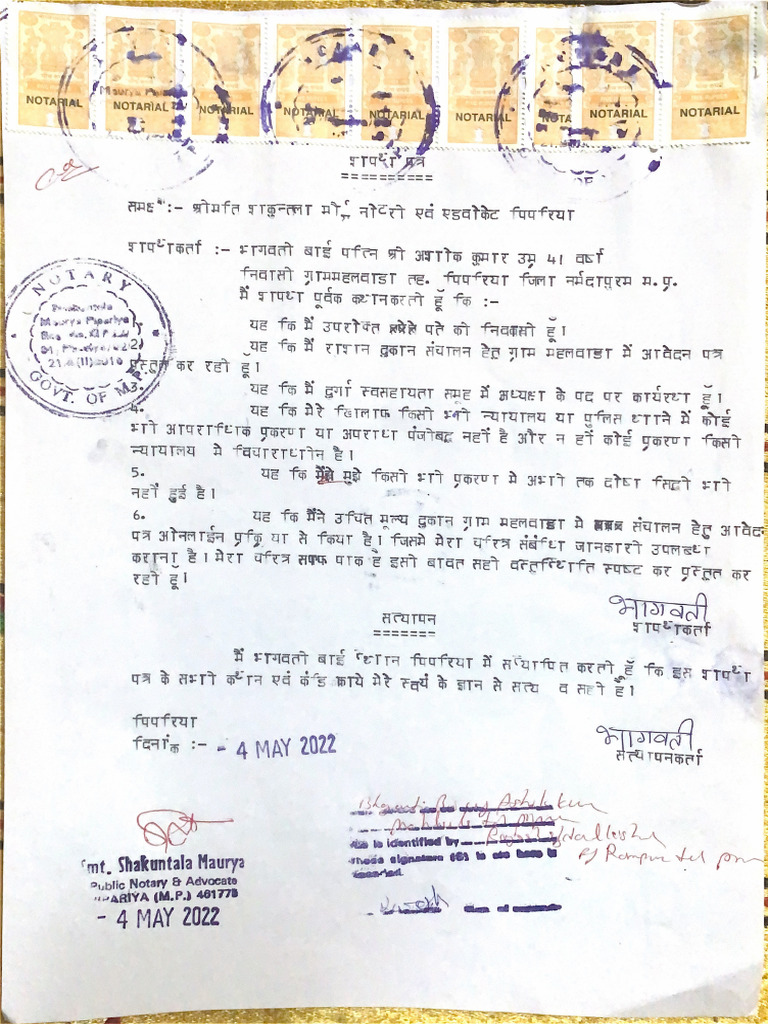 NOTARIAL NOTARIAL NOTARIAL NOTARIAL NOTARIAL NOTARIAL NOTARIAL NOTARIAL NOTARIAL
शपथ पत्र
==========
समक्ष :- श्रीमति शकुन्तला मौर्य नोटरी एवं एडवोकेट पिपरिया
शपथकर्ता :- भागवती बाई पत्नि श्री अशोक कुमार उम्र 41 वर्ष
निवासी ग्राममहलवाडा तह. पिपरिया जिला नर्मदापुरम म.प्र.
मैं शपथ पूर्वक कथनकरती हूँ कि :-
NOTARY
Shakuntala
Maurya Pipariya
GOVT. OF M.P.
यह कि मैं उपरोक्त पते की निवासी हूँ।
2. यह कि मैं राशन दुकान संचालन हेतु ग्राम महलवाडा में आवेदन पत्र
प्रस्तुत कर रही हूँ।
3. यह कि मैं दुर्गा स्वसहायता समूह में अध्यक्ष के पद पर कार्यरथ हूँ।
4. यह कि मेरे खिलाफ किसी भी न्यायालय या पुलिस थाने में कोई
भी आपराधिक प्रकरण या अपराध पंजीबद्ध नहीं है और न हीं कोई प्रकरण किसी
न्यायालय मे विचाराधीन है।
5. यह कि मुझे किसी भी प्रकरण मे अभी तक दोष सिद्धी भी
नहीं हुई है।
6. यह कि मैंने उचित मूल्य दुकान ग्राम महलवाडा मे संचालन हेतु आवेदन
पत्र ऑनलाईन प्रक्रिया से किया है। जिसमे मेरा चरित्र संबंधी जानकारी उपलब्ध
कराना है। मेरा चरित्र साफ पाक है इसी बावत सही वस्तुस्थिति स्पष्ट कर प्रस्तूत कर
रही हूँ।
भागवती
शपथकर्ता
सत्यापन
=======
मैं भागवती बाई स्थान पिपरिया में सत्यापित करती हूँ कि इस शपथ
पत्र के सभी कथन एवं कंडिकाये मेरे स्वयं के ज्ञान से सत्य व सही है।
पिपरिया
दिनांक :- - 4 MAY 2022
भागवती
सत्यापनकर्ता
is identified by
Smt. Shakuntala Maurya
Public Notary & Advocate
PIPARIYA (M.P.) 461775
- 4 MAY 2022